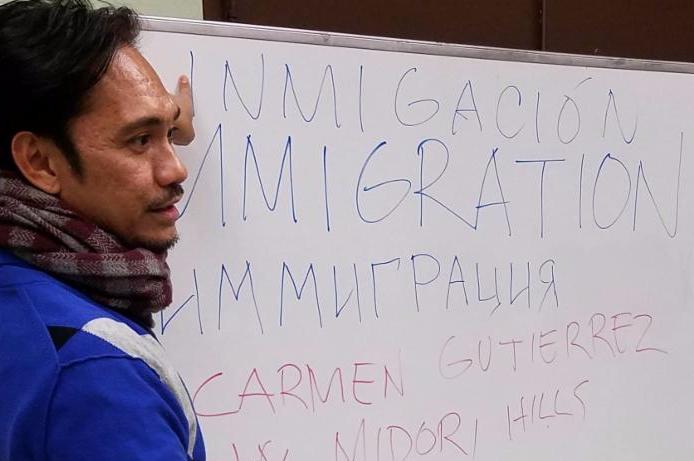 INMIGACIÓN
IMMIGRATION
ИММИГРАЦИЯ
CARMEN GUTIERREZ
MIDORI HILLS